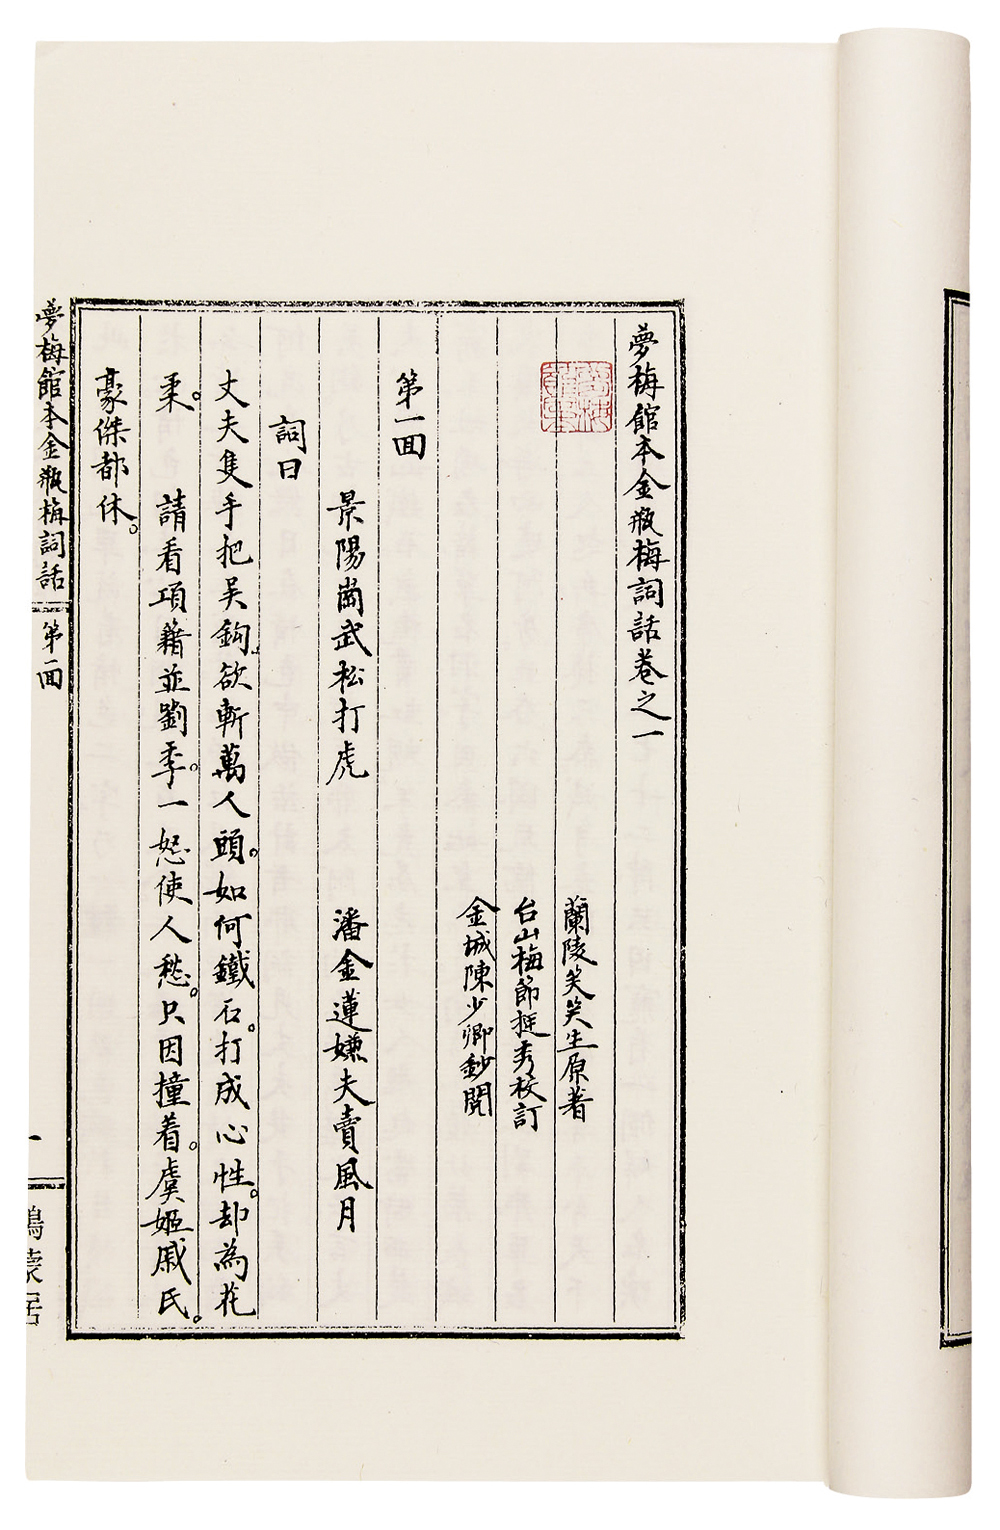 夢梅館本金瓶梅詞話卷之一
蘭陵笑笑生原著
台山梅節挺秀校訂
金城陳少卿鈔閱
第一回
景陽崗武松打虎　潘金蓮嫌夫賣風月
詞曰
丈夫隻手把吴鈎。欲斬萬人頭。如何鐵石。打成心性。却為花
柔。　請看項籍並劉季。一怒使人愁。只因撞着。虞姬戚氏。
豪傑都休。
夢梅館本金瓶梅詞話
第一回
一